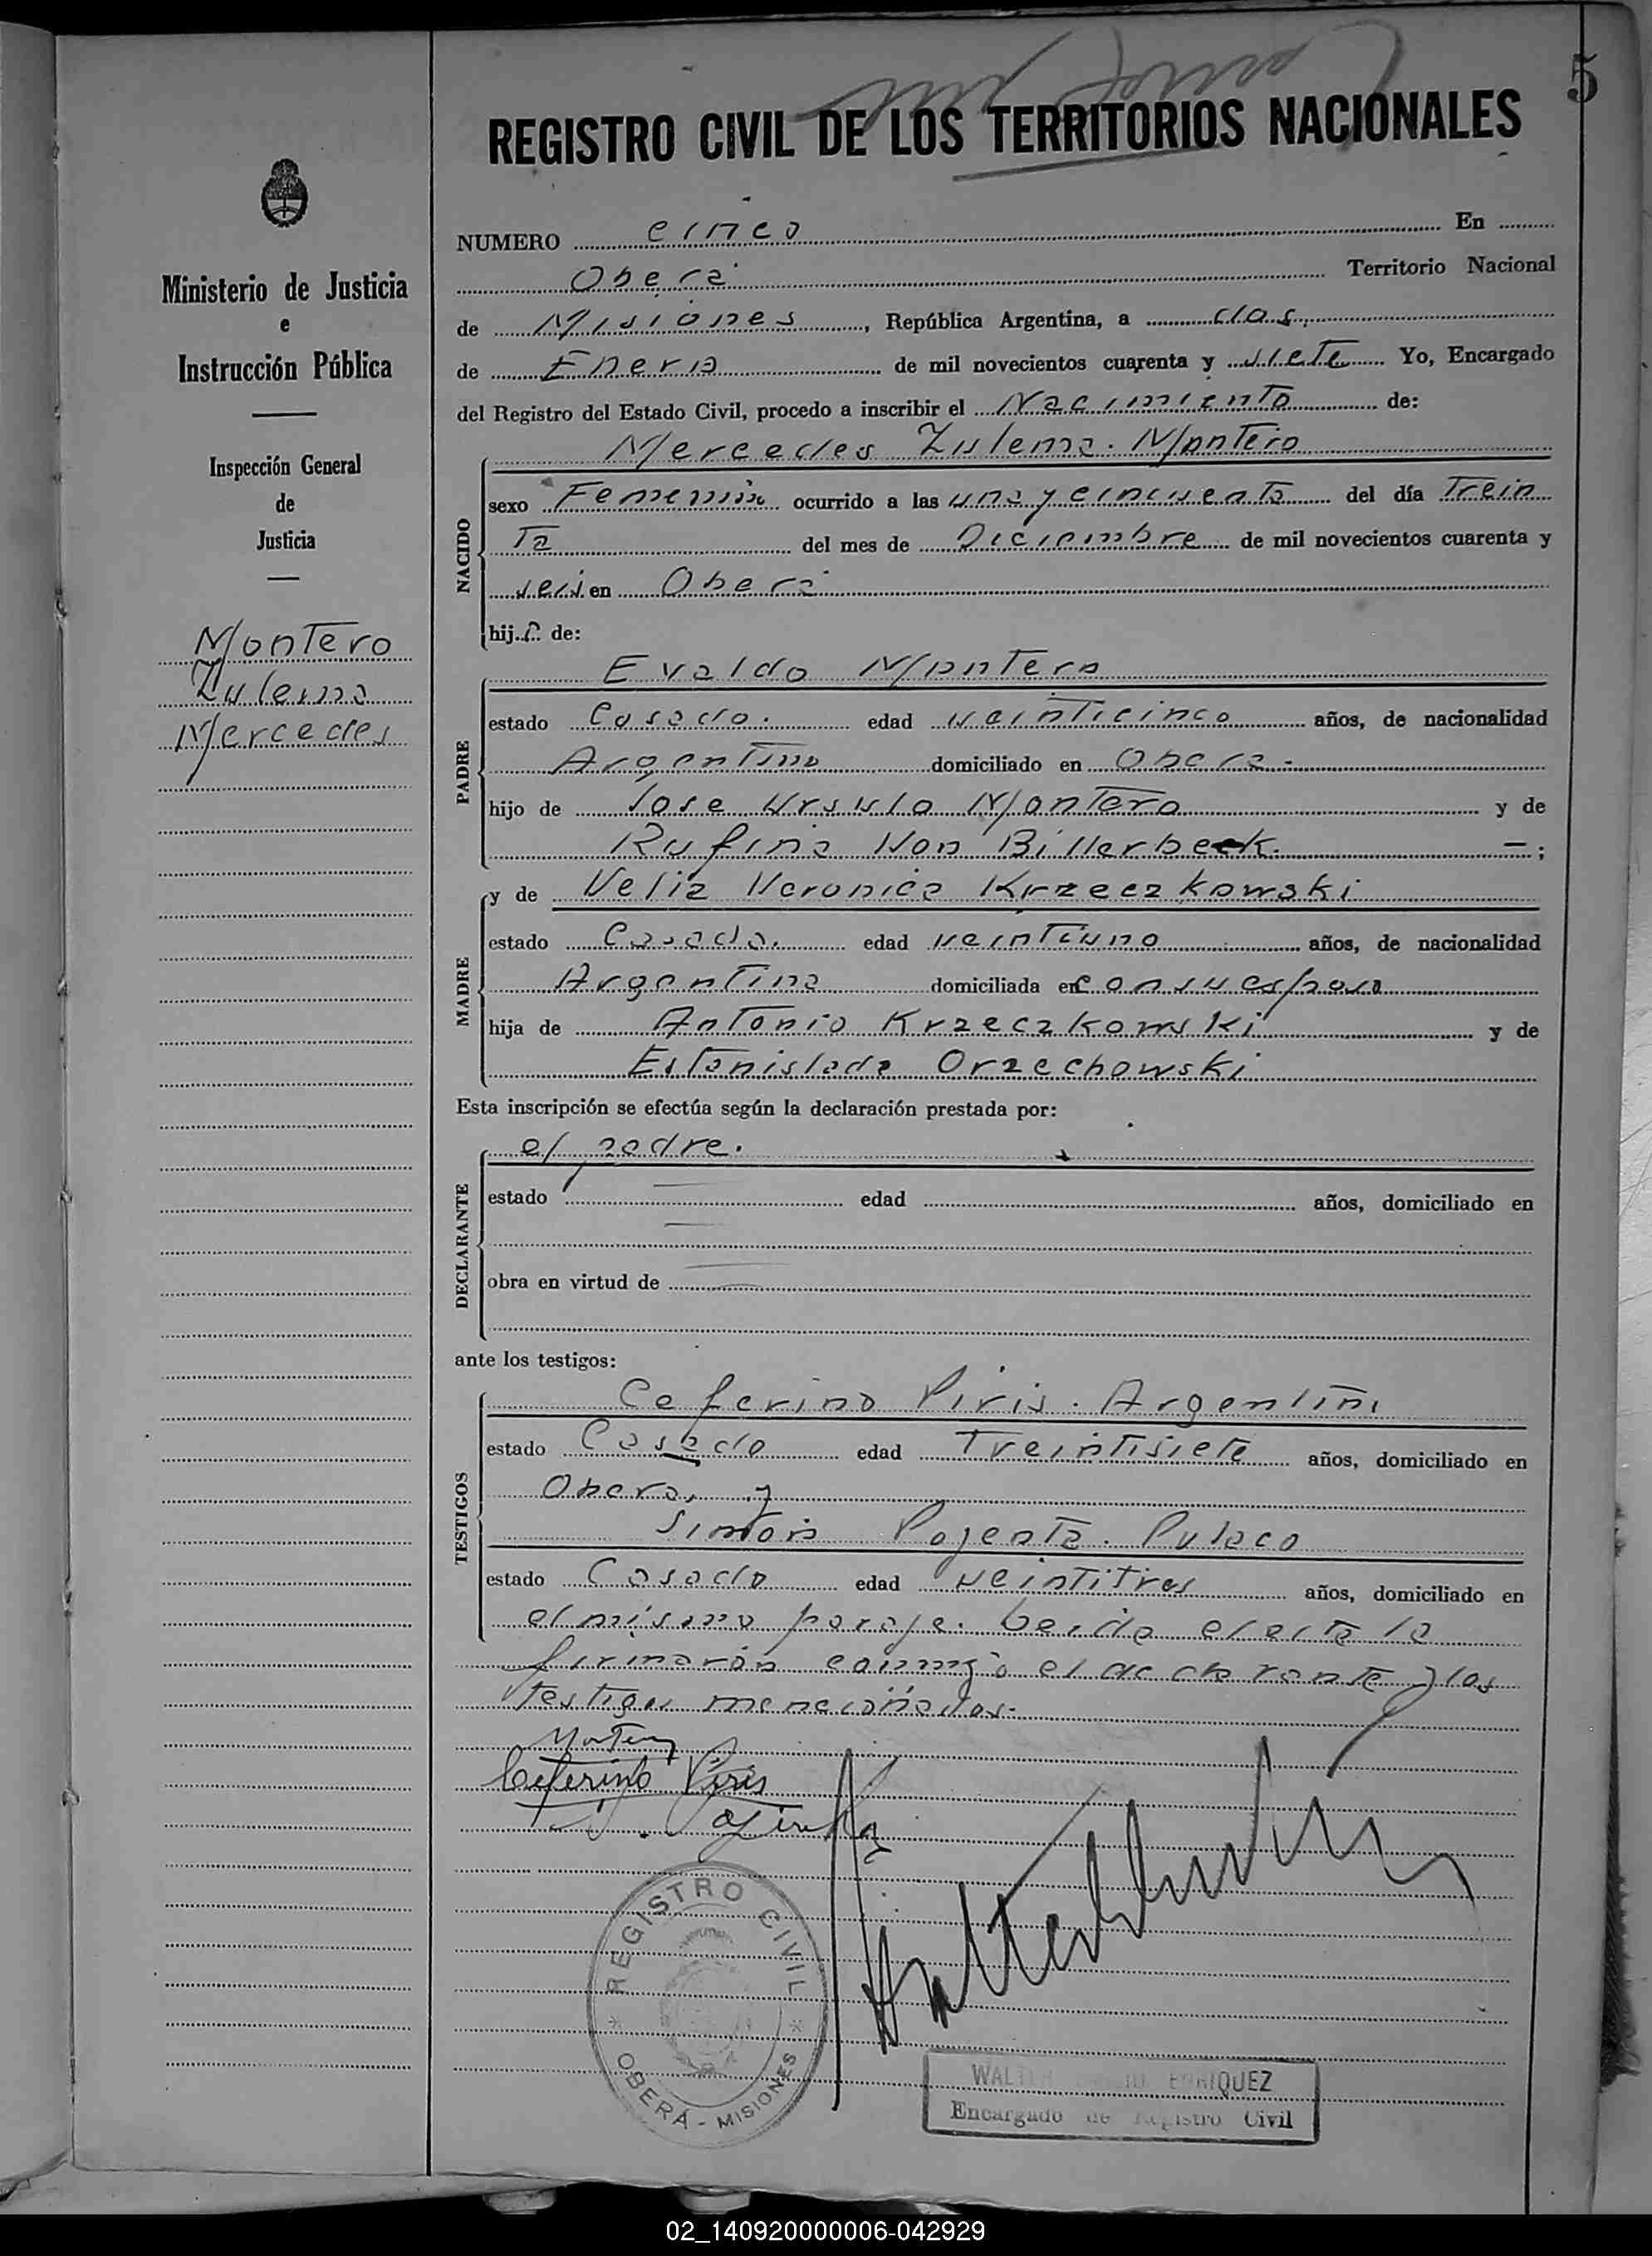 5
REGISTRO CIVIL DE LOS TERRITORIOS NACIONALES
Ministerio de Justicia
e
Instrucción Pública
Inspección General
de
Justicia
Montero
Zulema
Mercedes
NUMERO cinco En
Oberá Territorio Nacional
de Misiones, República Argentina, a dos
de Enero de mil novecientos cuarenta y siete Yo, Encargado
del Registro del Estado Civil, procedo a inscribir el Nacimiento de:
NACIDO
Mercedes Zulema Montero
sexo Femenino ocurrido a las una y cincuenta del día Trein
Ta del mes de Diciembre de mil novecientos cuarenta y
seis en Oberá
hija de:
PADRE
Evaldo Montero
estado Casado. edad veinticinco años, de nacionalidad
Argentino domiciliado en Obera.
hijo de Jose Ursulo Montero y de
Rufina Von Billerbeck. — ;
MADRE
y de Velia Veronica Krzeczkowski
estado Casada. edad veintiuno años, de nacionalidad
Argentina domiciliada en con su esposo
hija de Antonio Krzeczkowski y de
Estanislada Orzechowski
Esta inscripción se efectúa según la declaración prestada por:
DECLARANTE
el padre.
estado — edad años, domiciliado en
—
obra en virtud de —
ante los testigos:
TESTIGOS
Ceferino Piris. Argentino
estado Casado edad Treintisiete años, domiciliado en
Obera, y
Simón Pojenta. Polaco
estado Casado edad veintitres años, domiciliado en
el mismo paraje. Leida el acta la
firmarón conmigo el declarante y los
testigos mencionados.
Montero
Ceferino Piris
REGISTRO CIVIL
OBERÁ - MISIONES
WALTER ENRIQUEZ
Encargado de Registro Civil
02_140920000006-042929